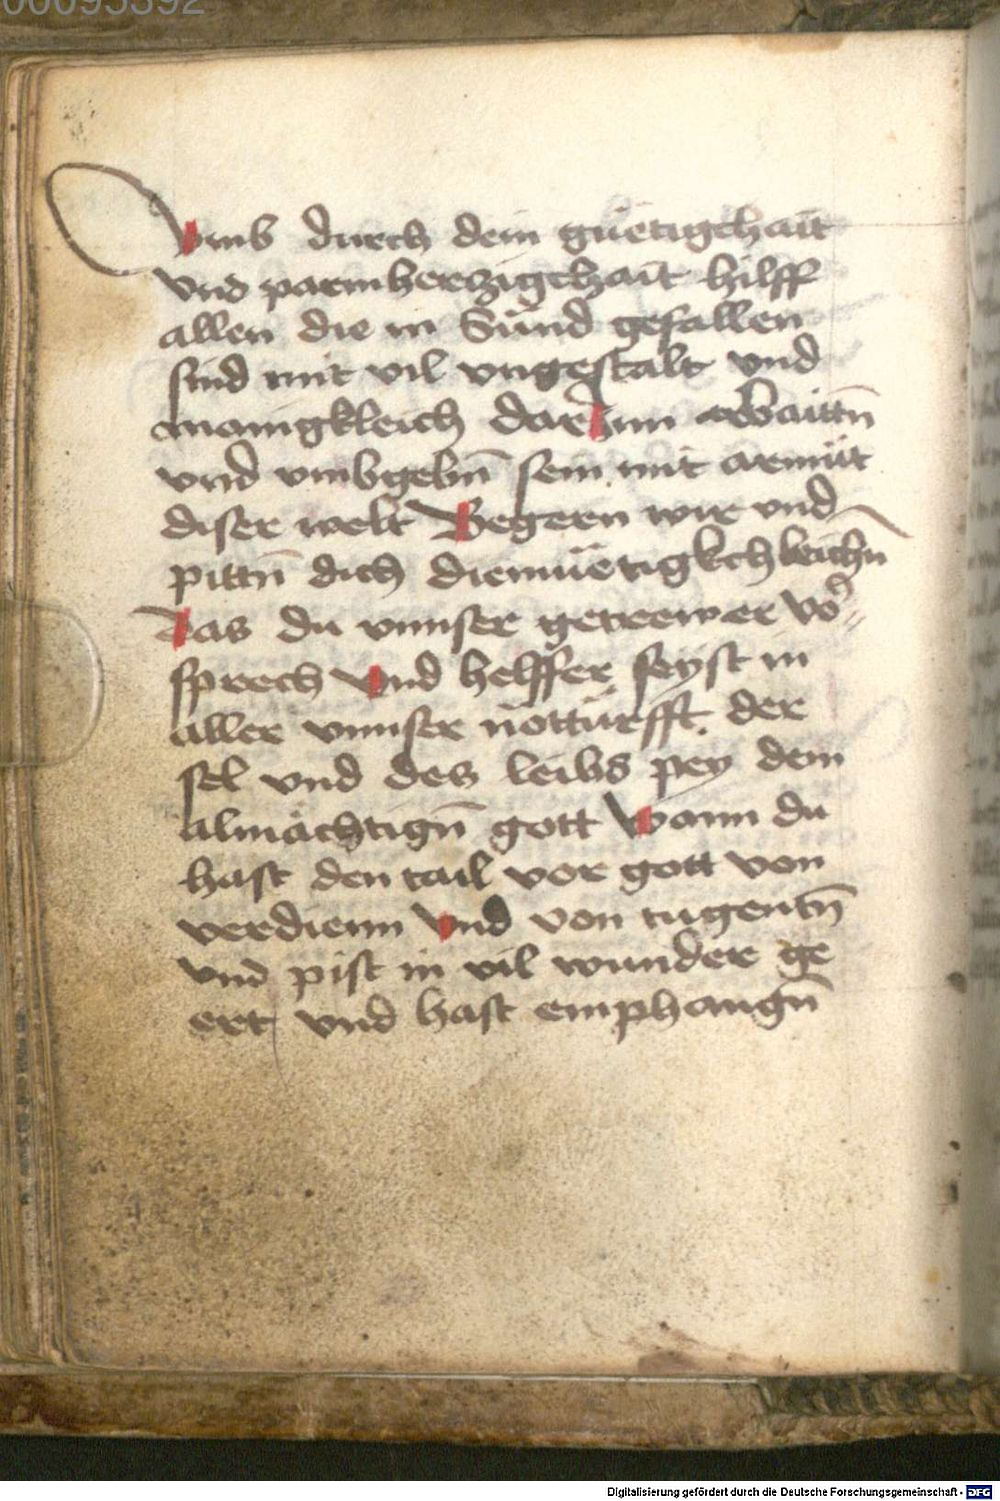 00095392
Vmb durch dein güetigchait
vnd parmherczigchait hilff
allen die in Sünd gefallen
sind mit vil vngestalt vnd
manigkleich darInn arbaittn̄
vnd vmbgebn̄ sein mit armüt
diser welt Begern wir vnd
pittn̄ dich diemüetigkchleichn̄
das du vnnser getrewer vo᷑=
sprech Vnd helffer seyst in
aller vnnser nottürfft. der
sel vnd des leibs pey dem
almächtign̄ gott Wann du
hast den tail vor gott von
verdienn Vnd von tugentn̄
vnd pist in vil wunder ge
ert vnd hast emphangn̄
Digitalisierung gefördert durch die Deutsche Forschungsgemeinschaft - DFG